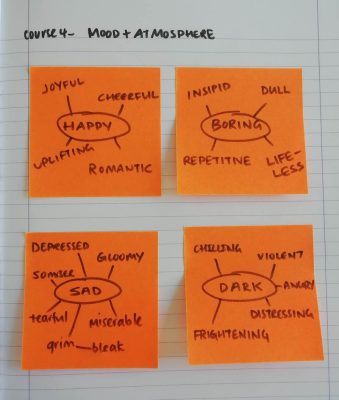 COURSE 4- MOOD + ATMOSPHERE
JOYFUL
CHEERFUL
HAPPY
UPLIFTING
ROMANTIC
INSIPID
DULL
BORING
REPETITIVE
LIFE-
LESS
DEPRESSED
GLOOMY
SOMBER
SAD
tearful
miserable
grim
bleak
CHILLING
VIOLENT
DARK
ANGRY
DISTRESSING
FRIGHTENING